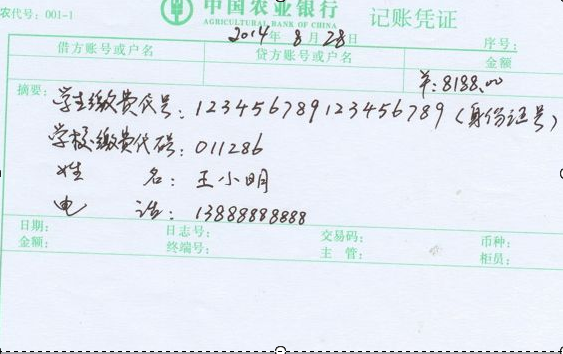 农代号：001-1
中国农业银行 记账凭证
AGRICULTURAL BANK OF CHINA
2014年8月28日 序号：
借方账号或户名 贷方账号或户名 金额
羊:8188.00
摘要：学生缴费代号：123456789123456789（身份证号）
学校缴费代码：011286
姓 名：王小明
电 话：13888888888
日期： 日志号： 交易码： 币种：
金额： 终端号： 主 管： 柜员：